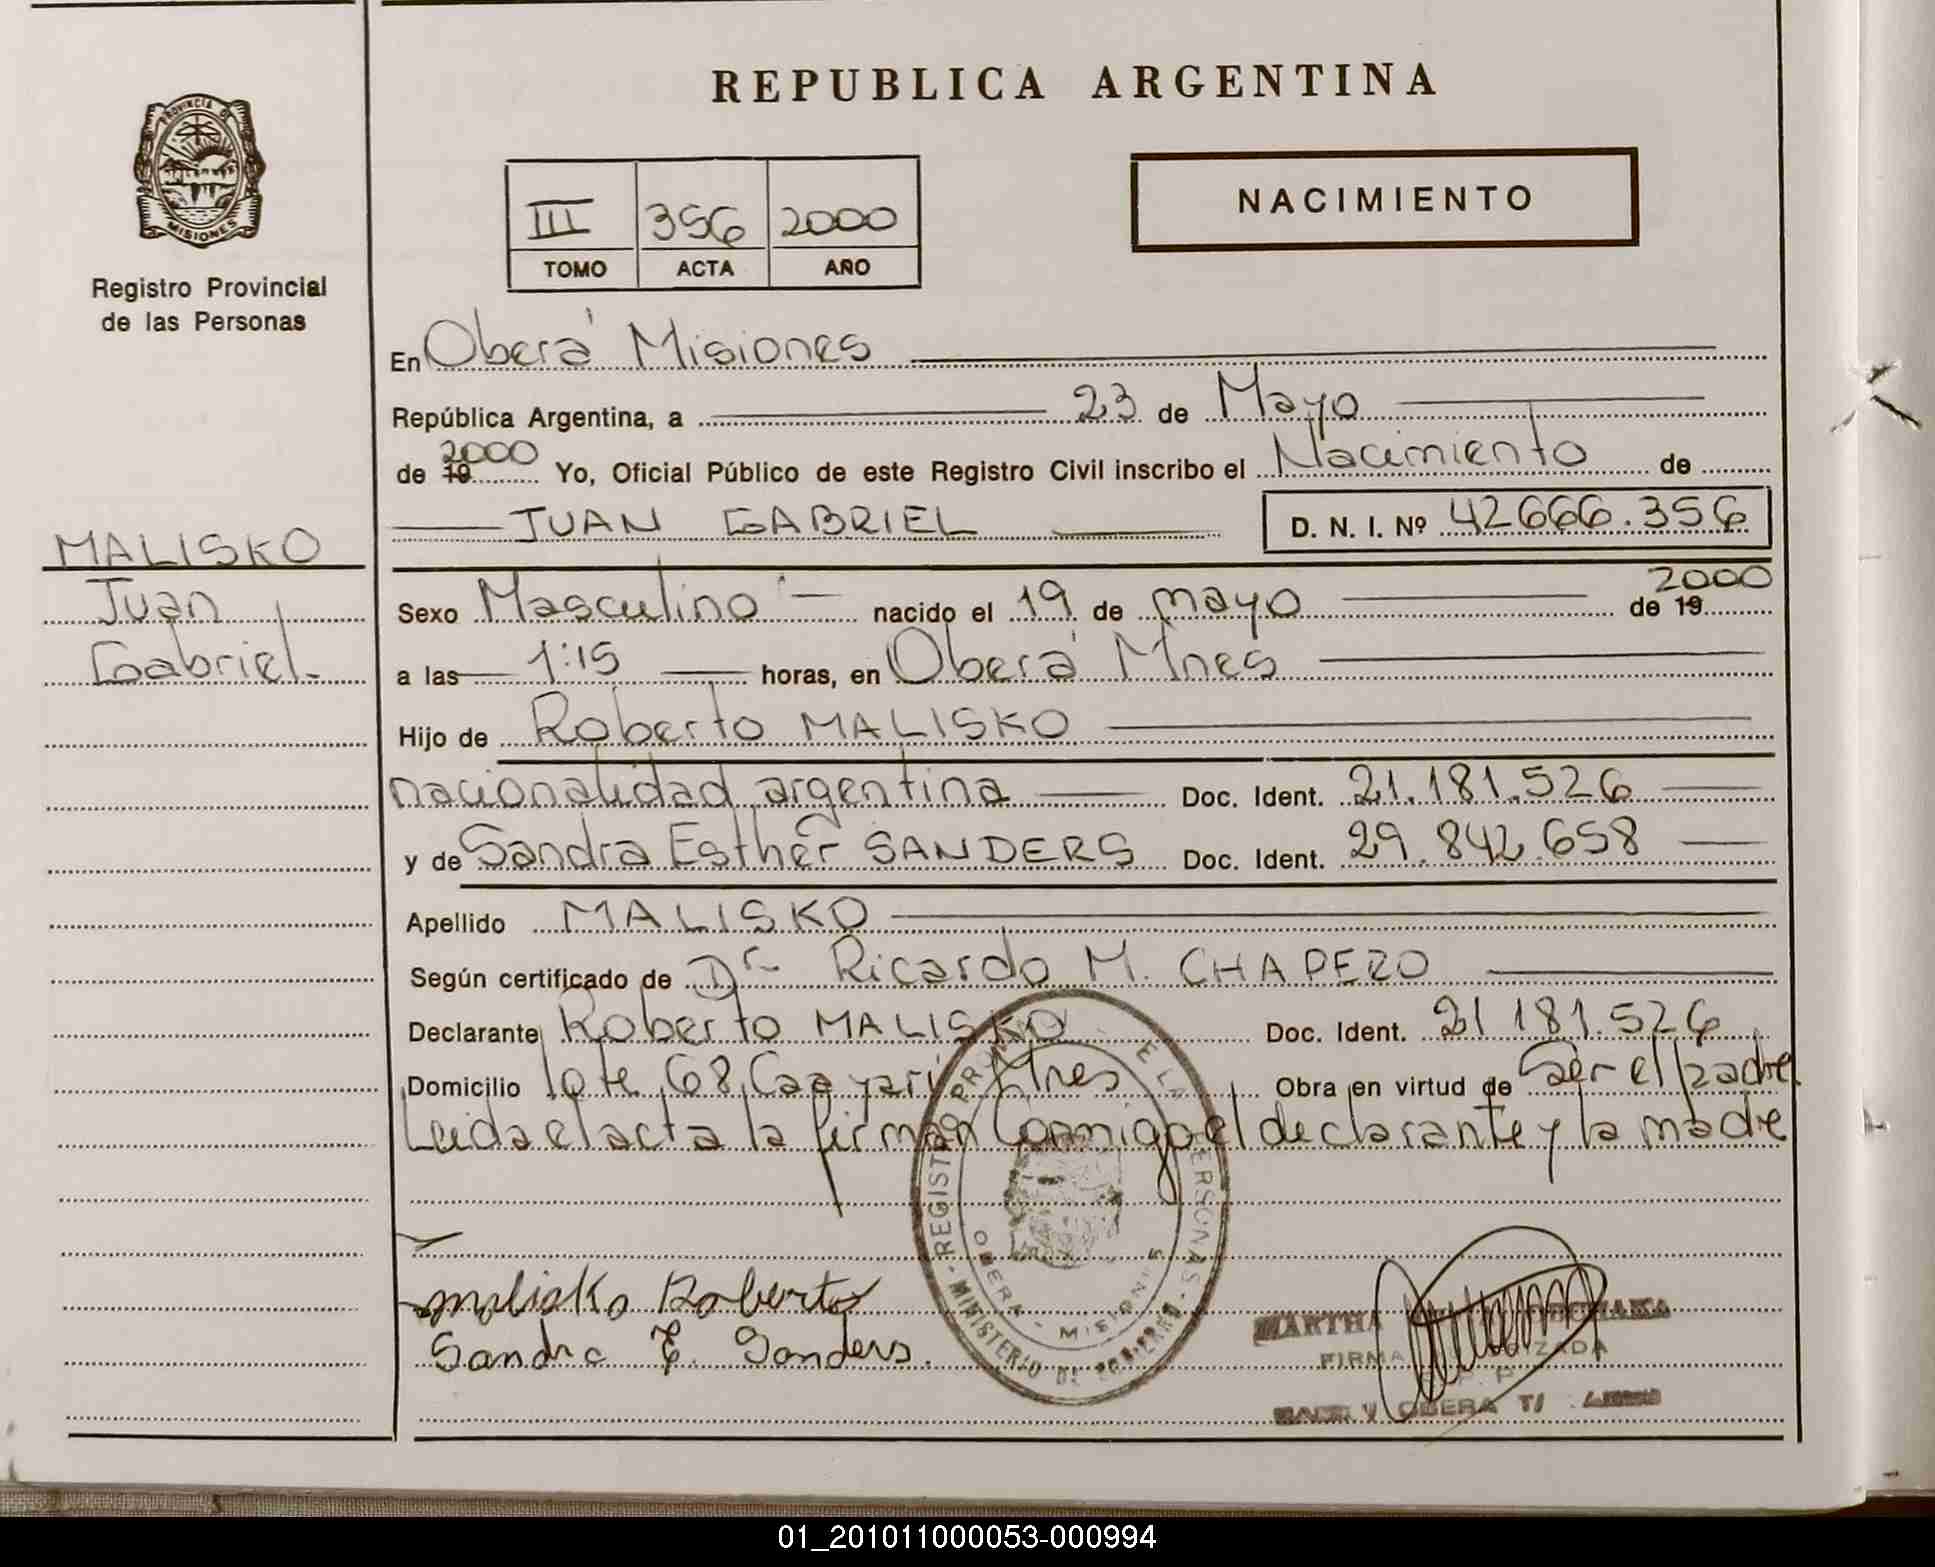 REPUBLICA ARGENTINA
PROVINCIA DE
MISIONES
Registro Provincial
de las Personas
III 356 2000
TOMO ACTA AÑO
NACIMIENTO
En Oberá Misiones
República Argentina, a 23 de Mayo
de 19 2000 Yo, Oficial Público de este Registro Civil inscribo el Nacimiento de
JUAN GABRIEL D. N. I. Nº 42666.356
MALISKO
Juan
Gabriel.
Sexo Masculino nacido el 19 de mayo de 19 2000
a las 1:15 horas, en Oberá Mnes
Hijo de Roberto MALISKO
nacionalidad argentina Doc. Ident. 21.181.526
y de Sandra Esther SANDERS Doc. Ident. 29.842.658
Apellido MALISKO
Según certificado de Dr Ricardo M. CHAPERO
Declarante Roberto MALISKO Doc. Ident. 21 181.526
Domicilio lote 68 Caa yari Mnes Obra en virtud de Ser el padre
Leida el acta la firman Conmigo el declarante y la madre
malisko Roberto
Sandra E. Sanders.
REGISTRO E LA ERSONAS
MINISTERIO DE
OBERA - MISIONES
MARTHA
FIRMA
OBERA
01_201011000053-000994